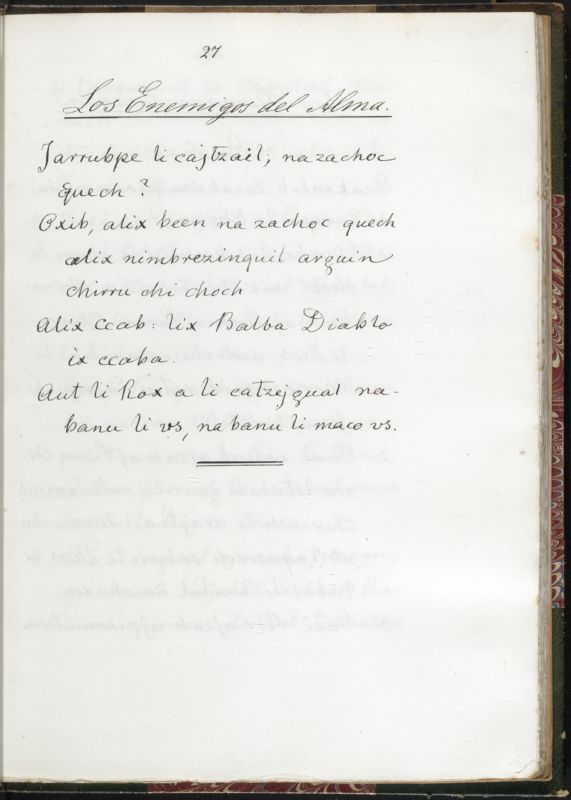 27
Los Enemigos del Alma.
Jarrubpe li cajtzail, nazachoc
quech?
Oxib, alix been na zachoc quech
alix nimbrezinquil arguin
chirru chi choch
Alix ccab: lix Balba Diablo
ix ccaba.
Aut li Rox a li catzejqual na-
banu li vs, nabanu li maco vs.